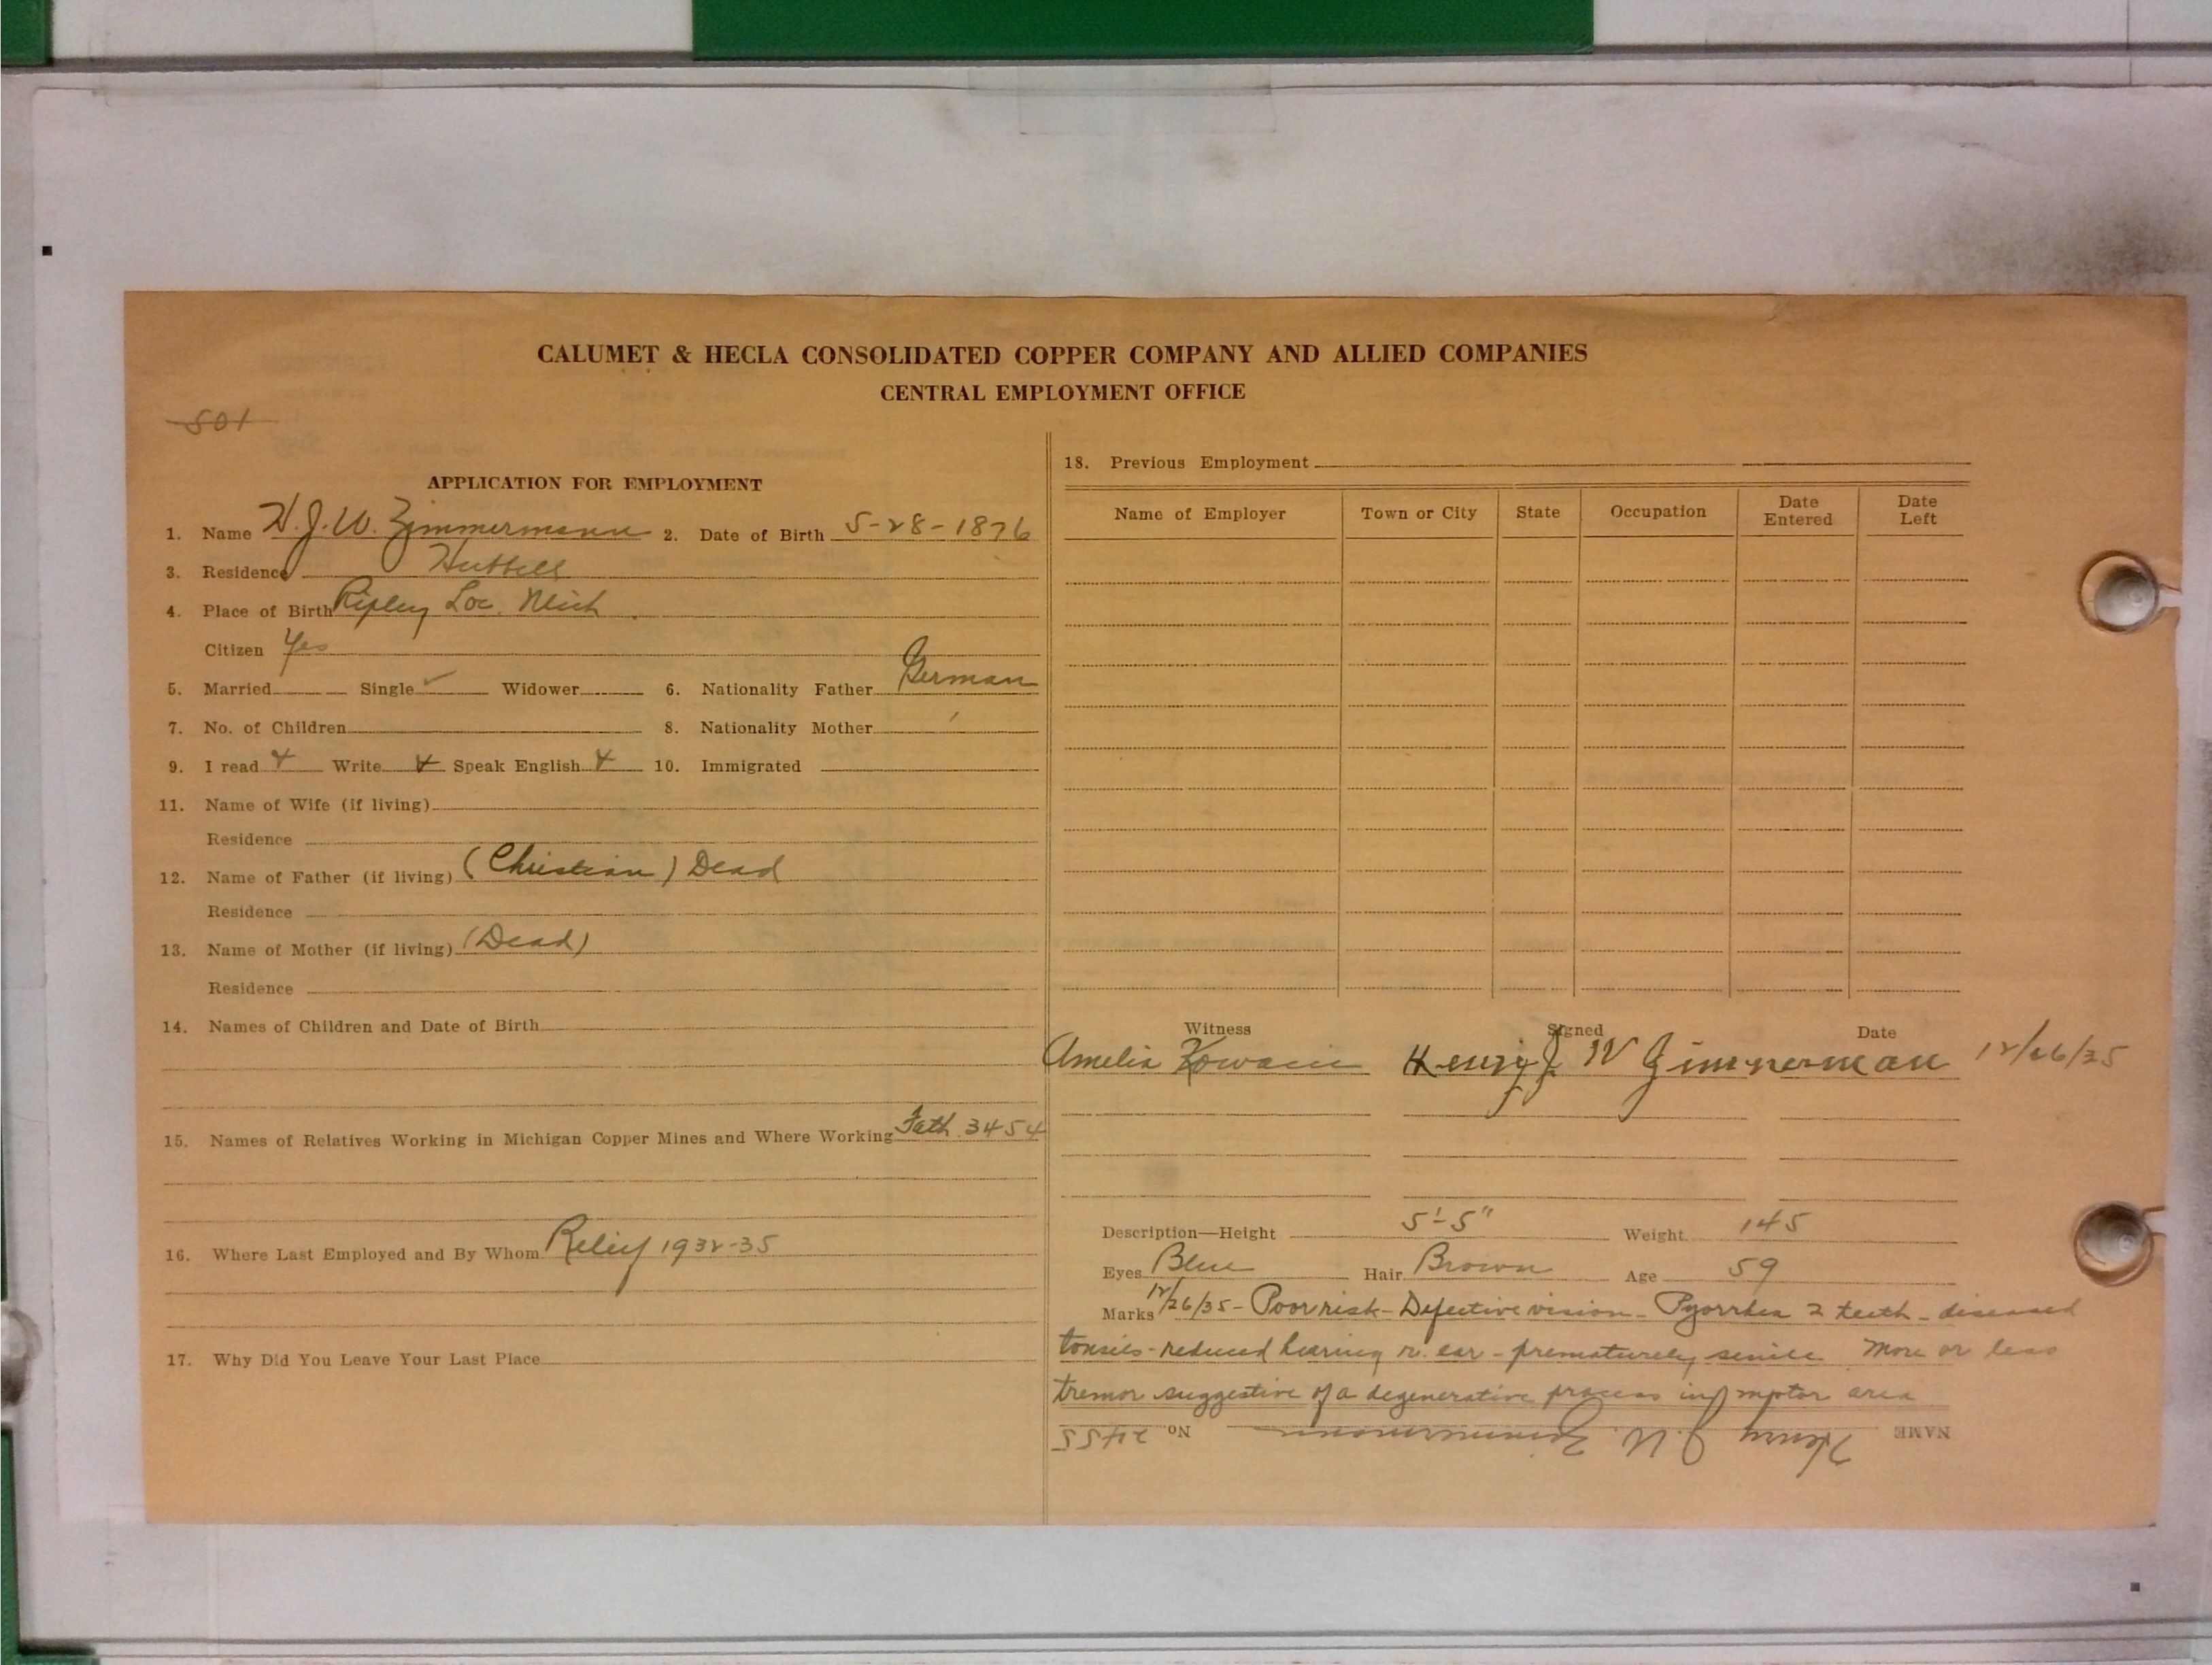 CALUMET & HECLA CONSOLIDATED COPPER COMPANY AND ALLIED COMPANIES
CENTRAL EMPLOYMENT OFFICE
501
APPLICATION FOR EMPLOYMENT
1. Name H.J.W. Zimmermann 2. Date of Birth 5-28-1876
3. Residence Hubbell
4. Place of Birth Ripley Loc. Mich
Citizen Yes
5. Married Single ✓ Widower 6. Nationality Father German
7. No. of Children 8. Nationality Mother
9. I read Write Speak English 10. Immigrated
11. Name of Wife (if living)
Residence
12. Name of Father (if living) (Christian) Dead
Residence
13. Name of Mother (if living) (Dead)
Residence
14. Names of Children and Date of Birth
15. Names of Relatives Working in Michigan Copper Mines and Where Working Fath. 3454
16. Where Last Employed and By Whom Relief 1932-35
17. Why Did You Leave Your Last Place
18. Previous Employment
Name of Employer Town or City State Occupation Date Entered Date Left
Witness Signed Date
Amelia Henry J W Zimmerman 12/26/35
Description—Height 5'-5" Weight 145
Eyes Blue Hair Brown Age 59
Marks 12/26/35 - Poor risk - Defective vision - Pyorrhea 2 teeth - diseased
tonsils - reduced hearing r. ear - prematurely senile More or less
tremor suggestive of a degenerative process in motor area
NAME Henry J.W. Zimmermann No. 21455